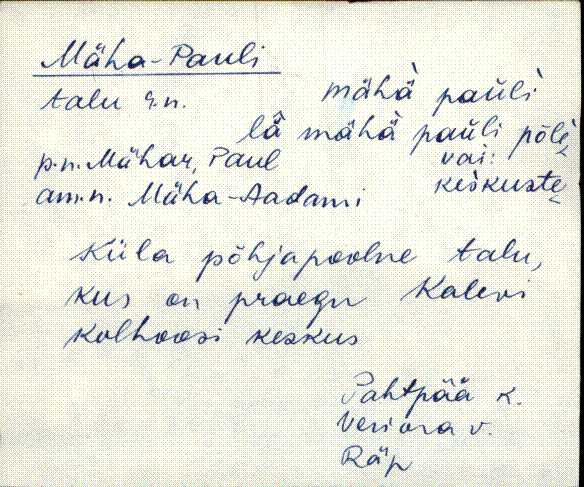 Mäha-Pauli
talu r.n. mähà paùlì
lǟ mähà paùli põlè,
p.n. Mähar, Paul vai:
am.n. Mäha-Aadami keskuste
Küla põhjapoolne talu,
kus on praegu Kalevi
kolhoosi keskus
Pahtpää k.
Veriora v.
Räp